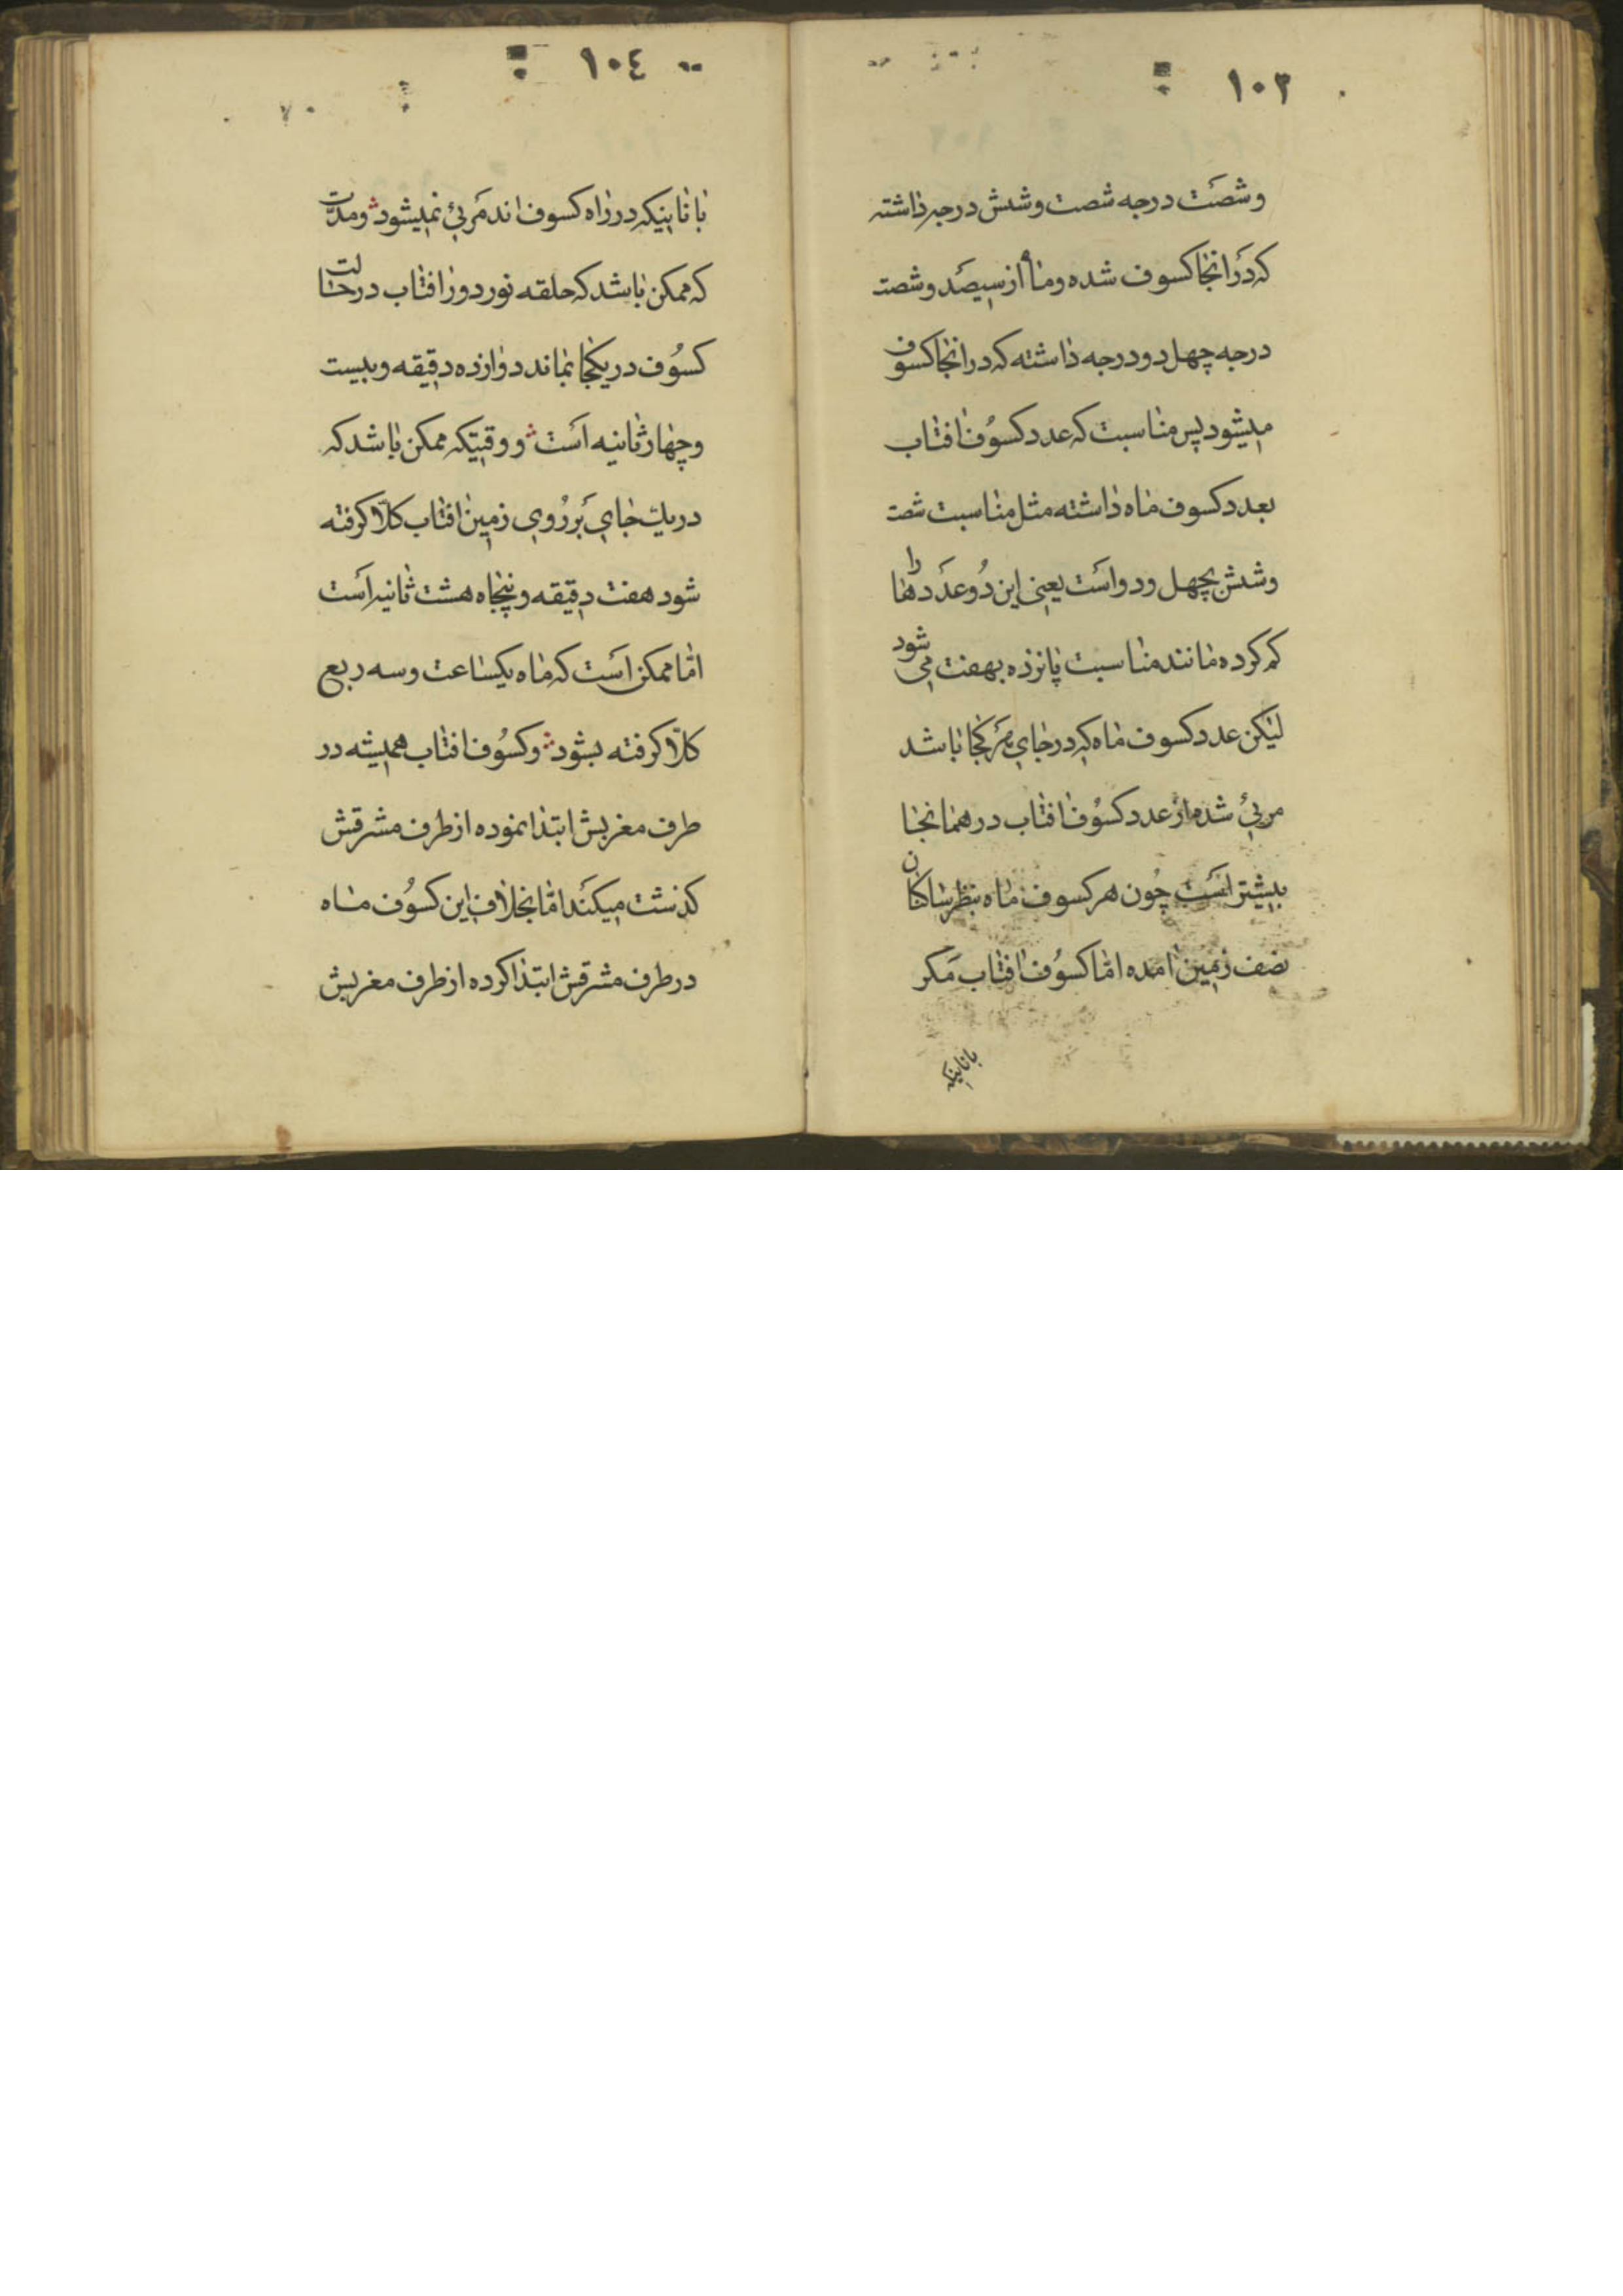 ١٠٣
وشصَت درجه شصت وشش درجه داشته
که دَرانجا کسوف شده وماه از سیصَد وشصت
درجه چهل دو درجه داشته که درانجا کسوف
میشود پس مناسبت که عدد کسوُف افتاب
بعدد کسوف ماه داشته مثل مناسبت شصت
وشش بچهل ودو اسَت یعنی این دُو عدَدها را
کم کرده مانند مناسبت پانزده بهفت می شود
لیَکن عدد کسوف ماه که در جای هَر کجا باشد
مریئ شده از عدد کسوُف افتاب در همانجا
بیشتر اسَت چُون هر کسوف ماه بنظر ساکنان
نصف زمین امده امّا کسوُف افتاب مَکر
بانااینکه
١٠٤
بانااینکه در راه کسوف اند مَریئ نمیشود ومدّت
که ممکن باشد که حلقه نور دور افتاب در حالت
کسوُف در یکجا بماند دوازده دقیقه وبیست
وچهار ثانیه اسَت و وقتیکه ممکن باشد که
در یك جای بَر رُوی زمین افتاب کلّا کرفته
شود هفت دقیقه وپنجاه هشت ثانیه اسَت
امّا ممکن اسَت که ماه یکساعت وسه ربع
کلّا کرفته بشود وکسوُف افتاب همیشه در
طرف مغربیش ابتدا نموده از طرف مشرقش
کذشت میکنَد امّا بخلاف این کسوُف ماه
در طرف مشرقش ابتدا کرده از طرف مغربیش